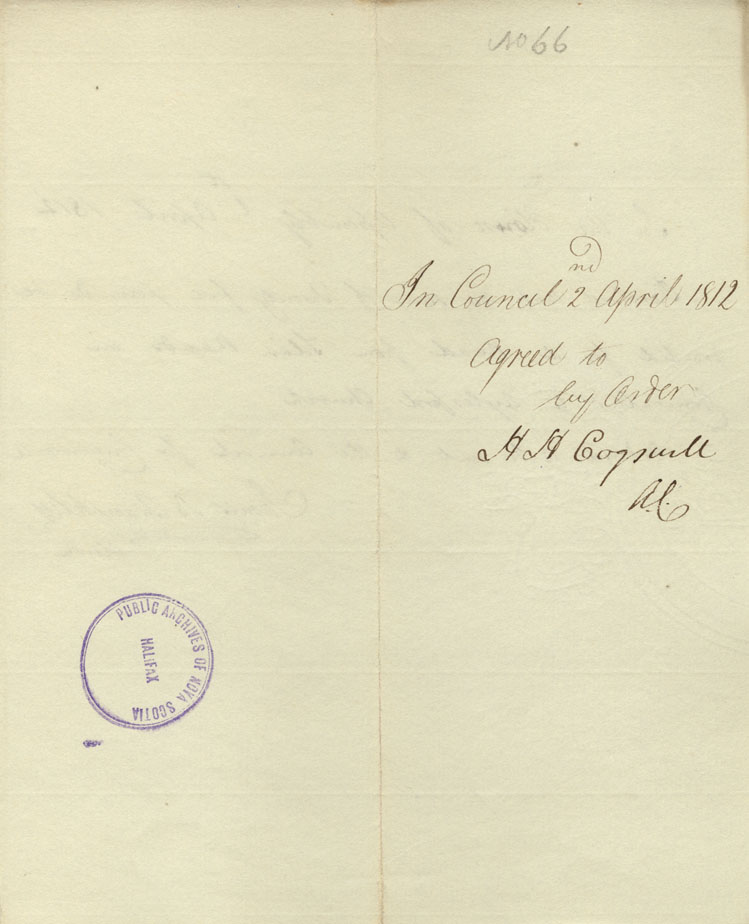 No 66
In Council 2nd April 1812
Agreed to
by Order
H H Cogswell
PUBLIC ARCHIVES OF NOVA SCOTIA
HALIFAX